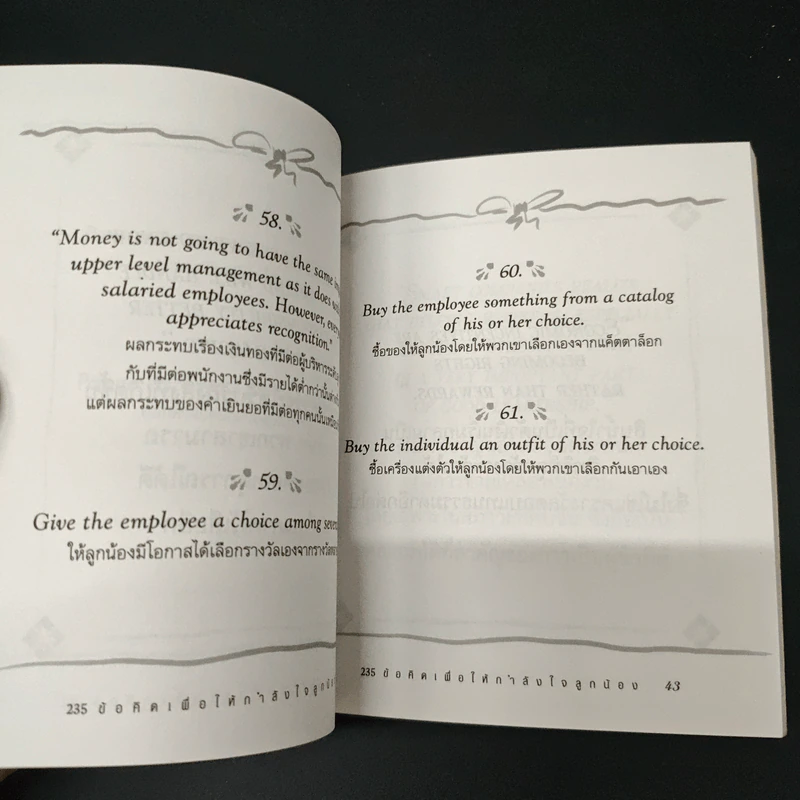 58.
"Money is not going to have the same
upper level management as it does
salaried employees. However,
appreciates recognition."
ผลกระทบเรื่องเงินทองที่มีต่อผู้บริหารระดับ
กับที่มีต่อพนักงานซึ่งมีรายได้ต่ำกว่านั้น
แต่ผลกระทบของคำเยินยอที่มีต่อทุกคนนั้น
59.
Give the employee a choice among
ให้ลูกน้องมีโอกาสได้เลือกรางวัลเองจาก
235 ข้อคิดเพื่อให้กำลังใจลูกน้อง
60.
Buy the employee something from a catalog
of his or her choice.
ซื้อของให้ลูกน้องโดยให้พวกเขาเลือกเองจากแค็ตตาล็อก
61.
Buy the individual an outfit of his or her choice.
ซื้อเครื่องแต่งตัวให้ลูกน้องโดยให้พวกเขาเลือกกันเอาเอง
235 ข้อคิดเพื่อให้กำลังใจลูกน้อง 43